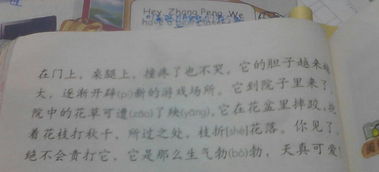 Hey, Zhang Peng. We
在门上，桌腿上，撞疼了也不哭。它的胆子越来越
大，逐渐开辟(pì)新的游戏场所。它到院子里来了
院中的花草可遭(zāo)了殃(yāng)。它在花盆里摔跤，抱
着花枝打秋千，所过之处，枝折(shé)花落。你见了，
绝不会责打它，它是那么生气勃(bó)勃，天真可爱！